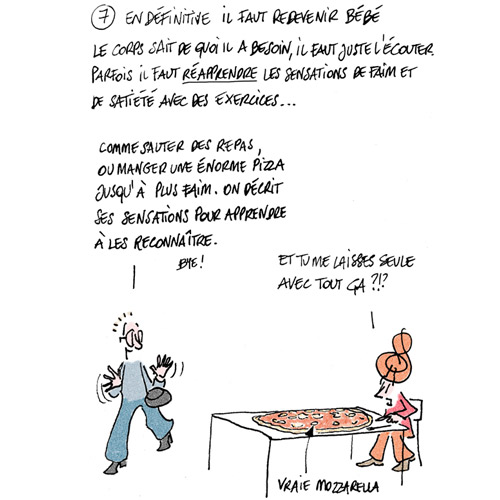 7 EN DÉFINITIVE IL FAUT REDEVENIR BÉBÉ
LE CORPS SAIT DE QUOI IL A BESOIN, IL FAUT JUSTE L'ÉCOUTER.
PARFOIS IL FAUT RÉAPPRENDRE LES SENSATIONS DE FAIM ET
DE SATIÉTÉ AVEC DES EXERCICES...
COMME SAUTER DES REPAS,
OU MANGER UNE ÉNORME PIZZA
JUSQU'À PLUS FAIM. ON DÉCRIT
SES SENSATIONS POUR APPRENDRE
À LES RECONNAÎTRE.
BYE!
ET TU ME LAISSES SEULE
AVEC TOUT ÇA ?!?
VRAIE MOZZARELLA